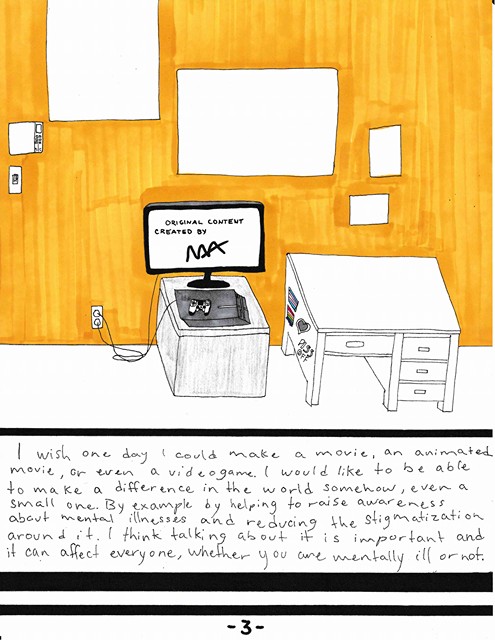 ORIGINAL CONTENT
CREATED BY
MAX
PISS
OFF
I wish one day I could make a movie, an animated
movie, or even a videogame. I would like to be able
to make a difference in the world somehow, even a
small one. By example by helping to raise awareness
about mental illnesses and reducing the stigmatization
around it. I think talking about it is important and
it can affect everyone, whether you are mentally ill or not.
-3-